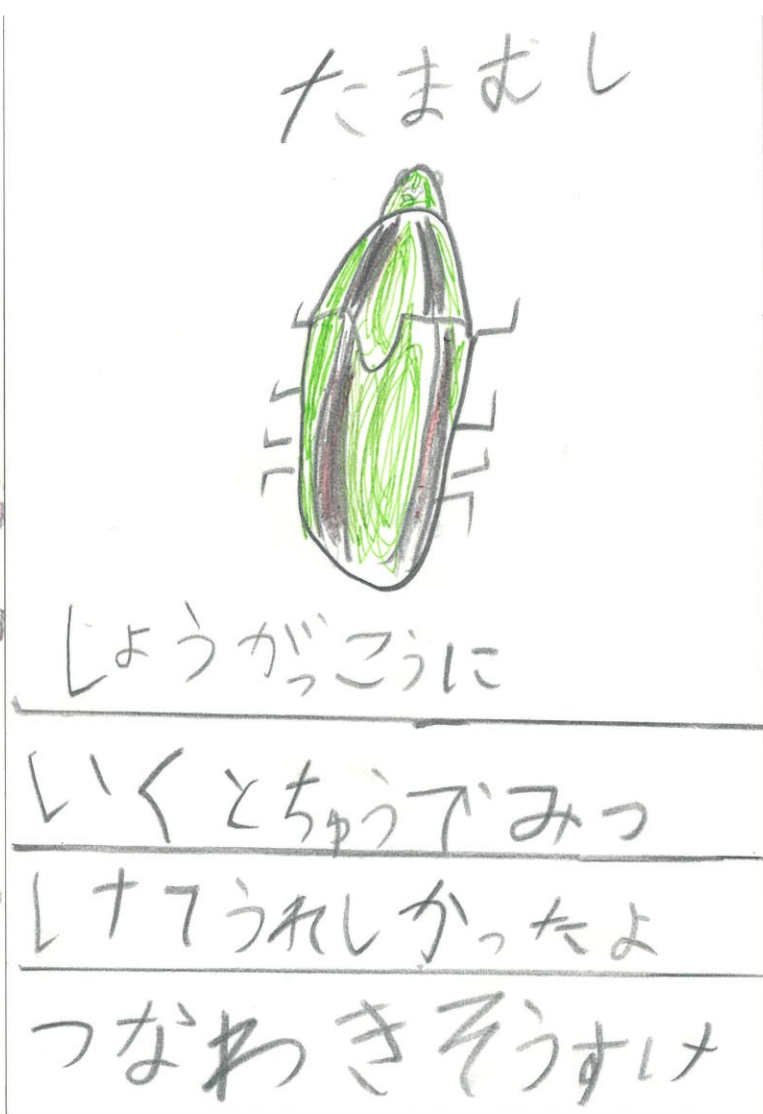 たまむし
しょうがっこうに
いくとちゅうでみつ
けてうれしかったよ
つなわきそうすけ